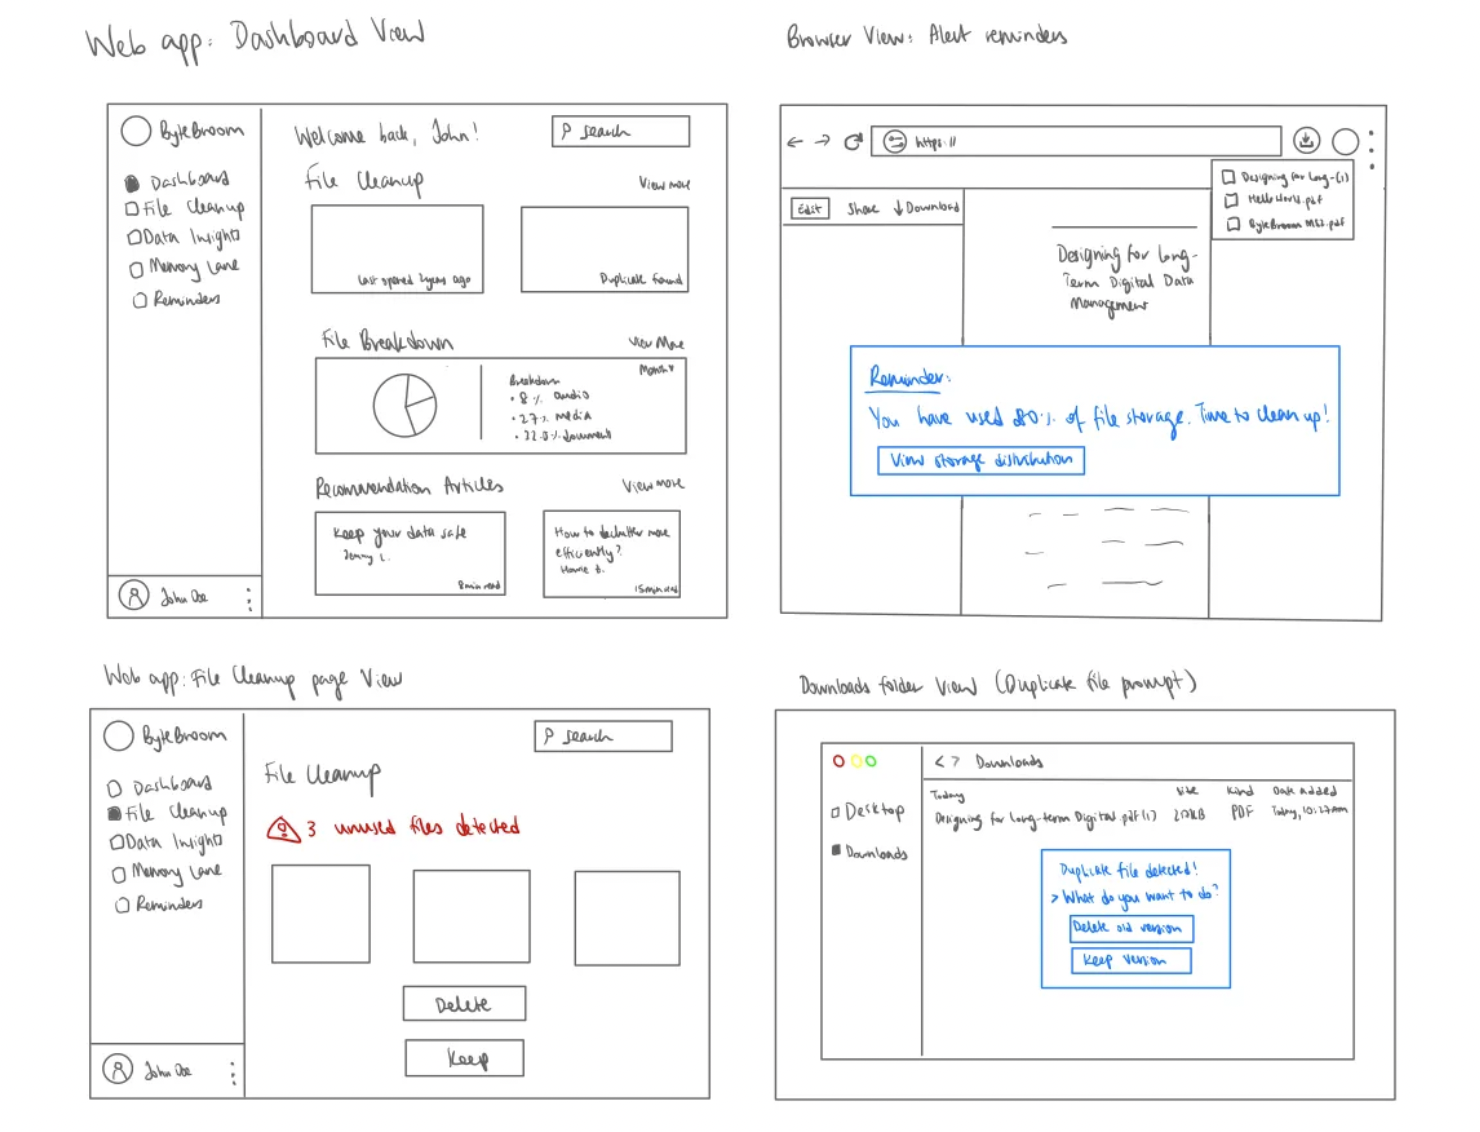 Web app: Dashboard View
ByteBroom
Dashboard
File Cleanup
Data Insight
Memory Lane
Reminders
John Doe
Welcome back, John!
search
File Cleanup
View more
Last opened 2 years ago
Duplicate found
File Breakdown
View More
Month
Breakdown
• 8% audio
• 27% media
• document
Recommendation Articles
View more
Keep your data safe
Jenny L.
8 min read
How to declutter more
efficiently?
15 min read
Browser View: Alert reminders
https://
Designing for Long-(1)
Hello World.pdf
ByteBroom
Edit
Share
Download
Designing for Long-
Term Digital Data
Management
Reminder:
You have used 80% of file storage. Time to clean up!
View storage distribution
Web app: File Cleanup page View
ByteBroom
Dashboard
File Cleanup
Data Insight
Memory Lane
Reminders
John Doe
search
File Cleanup
3 unused files detected
Delete
Keep
Downloads folder View (Duplicate file prompt)
Desktop
Downloads
< > Downloads
Today
Size
Kind
Date Added
Designing for Long-term Digital.pdf(1)
PDF
Today, 10:27AM
Duplicate file detected!
> What do you want to do?
Delete old version
Keep version